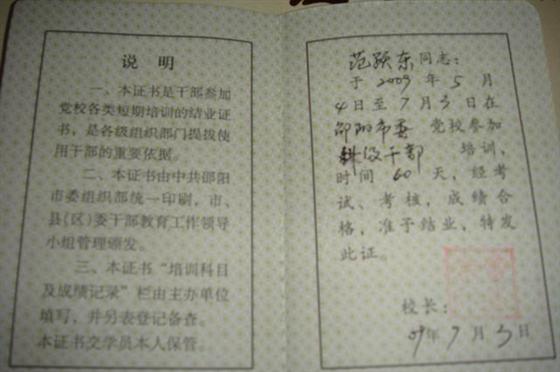 说明
一、本证书是干部参加
党校各类短期培训的结业证
书，是各级组织部门提拔使
用干部的重要依据。
二、本证书由中共邵阳
市委组织部统一印刷，市、
县(区)委干部教育工作领导
小组管理颁发。
三、本证书“培训科目
及成绩记录”栏由主办单位
填写，并另表登记备查。
本证书交学员本人保管。
范颖东同志：
于2009年5月
4日至7月3日在
邵阳市委党校参加
科级干部培训，
时间60天，经考
试、考核，成绩合
格，准予结业，特发
此证。
校长：
09年7月3日